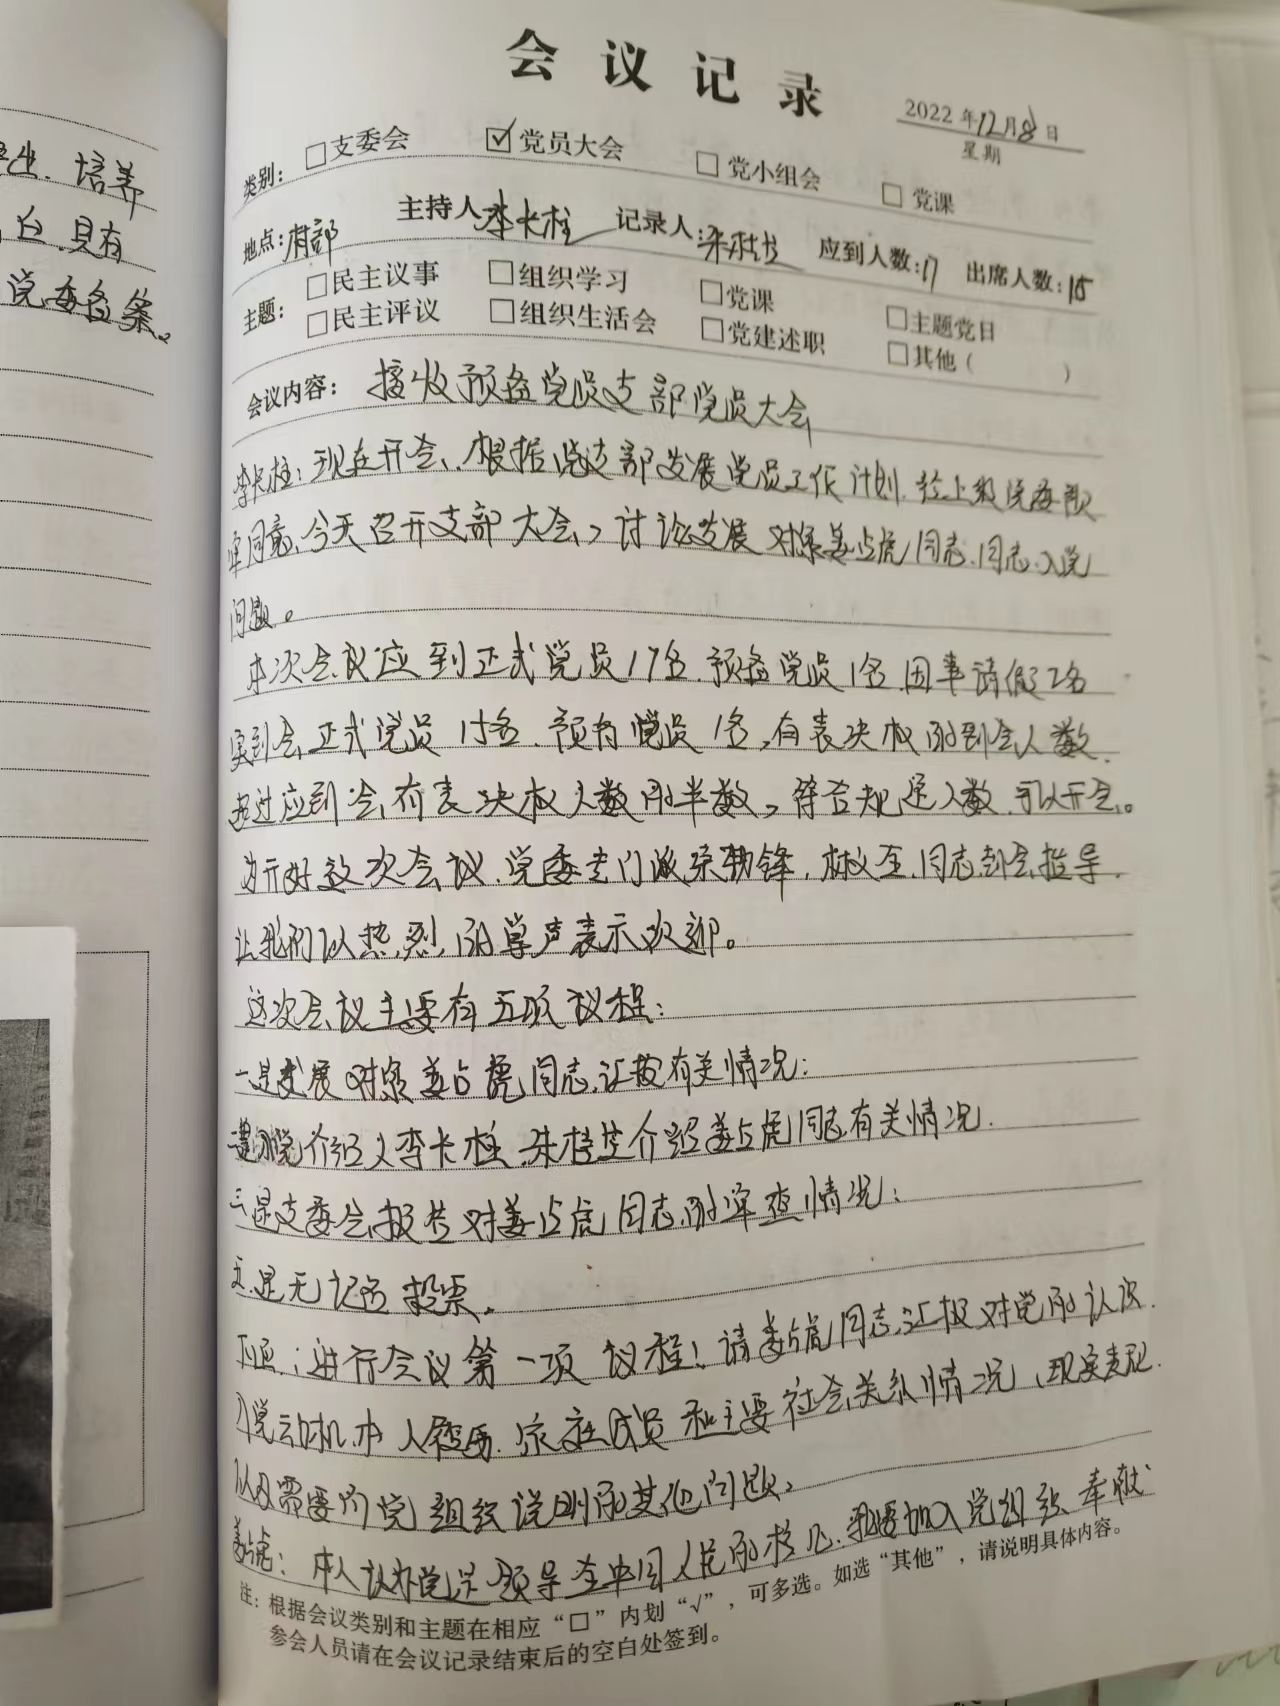 会议记录
2022年12月8日
星期
类别：□支委会 ☑党员大会 □党小组会 □党课
地点：村部 主持人李长柱 记录人：朱桂 应到人数：17 出席人数：15
主题：□民主议事 □组织学习 □党课 □主题党日
□民主评议 □组织生活会 □党建述职 □其他（ ）
会议内容：接收预备党员支部党员大会
李长柱：现在开会、根据党支部发展党员工作计划.经上级党委预
审同意，今天召开支部大会，讨论发展对象姜占虎同志.同志.入党
问题。
本次会议应到正式党员17名.预备党员1名.因事请假2名
实到会正式党员15名.预备党员1名，有表决权的到会人数.
超过应到会有表决权人数的半数，符合规定人数.可以开会。
为开好这次会议.党委专门派 锋. 同志到会指导.
让我们以热烈的掌声表示欢迎。
这次会议主要有五项议程：
一是发展对象姜占虎同志.汇报有关情况：
党介绍人李长柱.朱桂 介绍姜占虎同志有关情况.
三是支委会报告对姜占虎同志的审查情况：
五.是无记名投票。
下面：进行会议第一项议程：请姜占虎同志.汇报对党的认识.
入党动机.本人履历.家庭成员和主要社会关系情况、现实表现.
以及需要向党组织说明的其他问题。
姜占虎：本人认为党是领导全中国人民的核心.我要加入党组织奉献
注：根据会议类别和主题在相应“□”内划“√”，可多选。如选“其他”，请说明具体内容。
参会人员请在会议记录结束后的空白处签到。
培养
具有
党委备案。